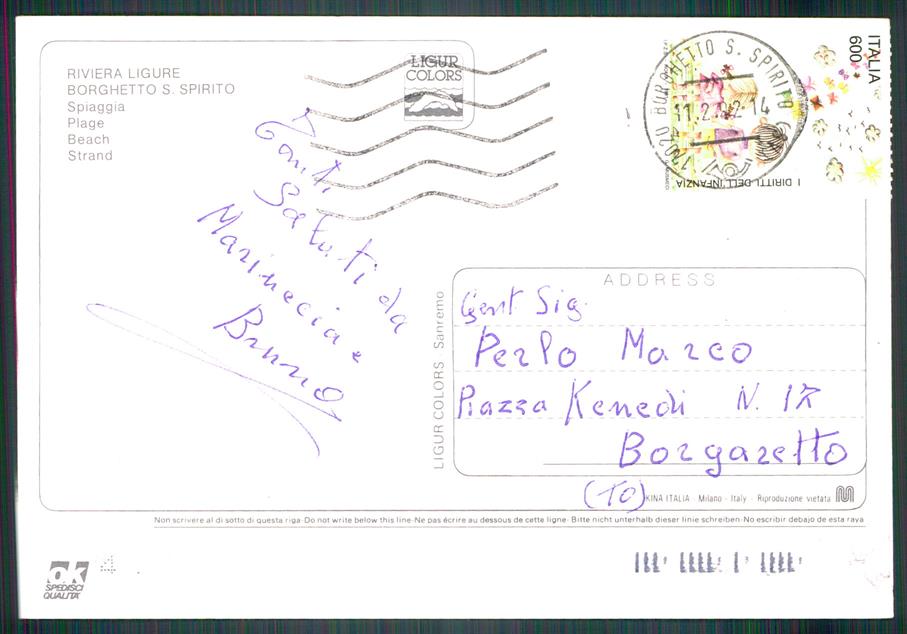 RIVIERA LIGURE
BORGHETTO S. SPIRITO
Spiaggia
Plage
Beach
Strand
LIGUR
COLORS
ITALIA
600
I DIRITTI DELL'INFANZIA
17020 BORGHETTO S. SPIRITO
Tanti
Saluti da
Marinuccia e
Bruno
LIGUR COLORS Sanremo
ADDRESS
Gent Sig.
Perlo Marco
Piazza Kenedi N. 17
Borgaretto
(TO)
KINA ITALIA - Milano - Italy - Riproduzione vietata
Non scrivere al di sotto di questa riga-Do not write below this line-Ne pas écrire au dessous de cette ligne-Bitte nicht unterhalb dieser linie schreiben-No escribir debajo de esta raya
OK
SPEDISCI
QUALITA'
4